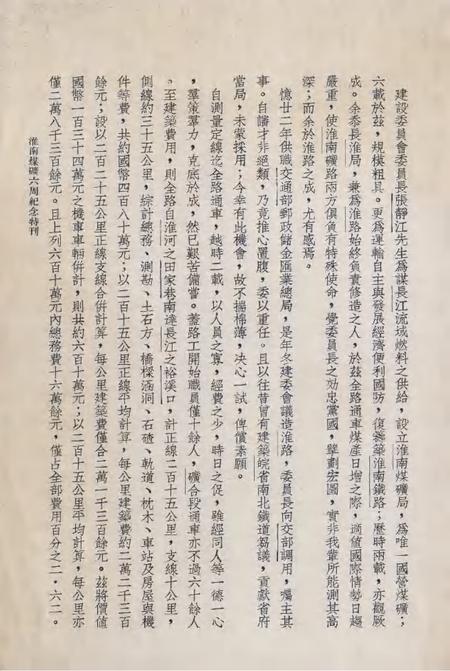 建設委員會委員長張靜江先生爲謀長江流域燃料之供給，設立淮南煤礦局，爲唯一國營煤礦；
六載於茲，規模粗具。更爲運輸自主與發展經濟便利國防，復籌築淮南鐵路；歷時兩載，亦觀厥
成。余忝長淮局，兼爲淮路始終負責修造之人，於茲全路通車煤產日增之際，適值國際情勢日趨
嚴重，使淮南礦路兩方俱負有特殊使命，覺委員長之効忠黨國，擘劃宏圖，實非我輩所能測其高
深；而余於淮路之成，尤有感焉。
憶廿二年供職交通部郵政儲金匯業總局，是年冬建委會議造淮路，委員長向交部調用，囑主其
事。自譾才非絕類，乃竟推心置腹，委以重任。且以往昔曾有建築皖省南北鐵道芻議，貢獻省府
當局，未蒙採用；今幸有此機會，故不揣棉薄，決心一試，俾償素願。
自測量定線迄全路通車，越時二載，以人員之寡，經費之少，時日之促，雖經同人等一德一心
，羣策羣力，克底於成，然已艱苦備嘗。蓋路工開始職員僅十餘人，礦合段通車亦不過六十餘人
。至建築費用，則全路自淮河之田家巷南達長江之裕溪口，計正線二百十五公里，支線十公里，
側線約三十五公里，綜計總務、測勘、土石方、橋樑涵洞、石碴、軌道、枕木、車站及房屋與機
件等費，共約國幣四百八十萬元；以二百十五公里正線平均計算，每公里建築費約二萬二千三百
餘元；設以二百二十五公里正線支線合併計算，每公里建築費僅合二萬一千三百餘元。茲將價值
國幣一百三十四萬元之機車車輛併計，則共約六百十萬元；以二百十五公里平均計算，每公里亦
僅二萬八千三百餘元。且上列六百十萬元內總務費十六萬餘元，僅占全部費用百分之二·六二。
淮南煤礦六周紀念特刊